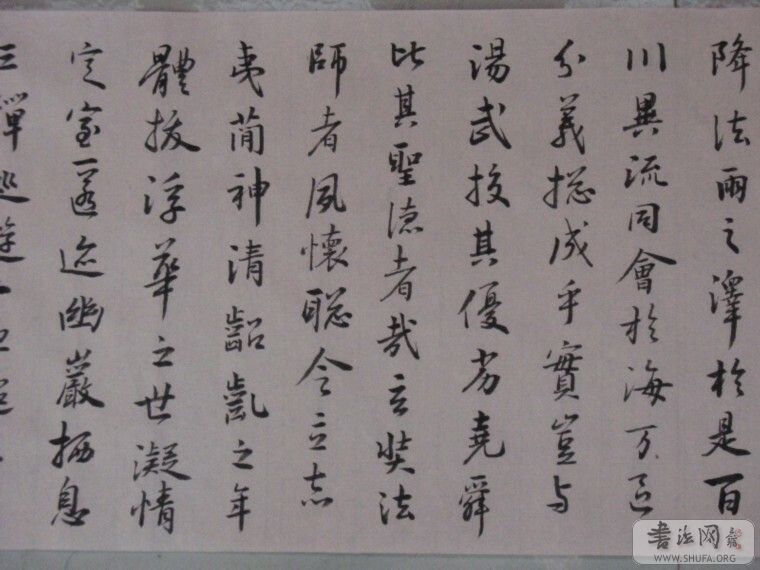 降法雨之澤於是百
川異流同會於海万區
分義揔成乎實豈与
湯武校其優劣堯舜
比其聖德者哉玄奘法
師者夙懷聡令立志
夷簡神清齠齔之年
體拔浮華之世凝情
定室匿迹幽巖栖息
三禪巡遊十地超
書法网
WWW.SHUFA.ORG